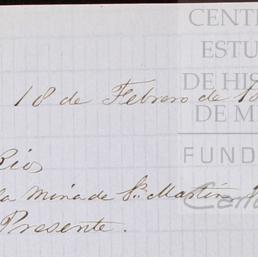 CENT
ESTU
DE HIS
DE M
FUND
18 de Febrero de 18
Rios
la Mina de Sn. Martin
Presente.